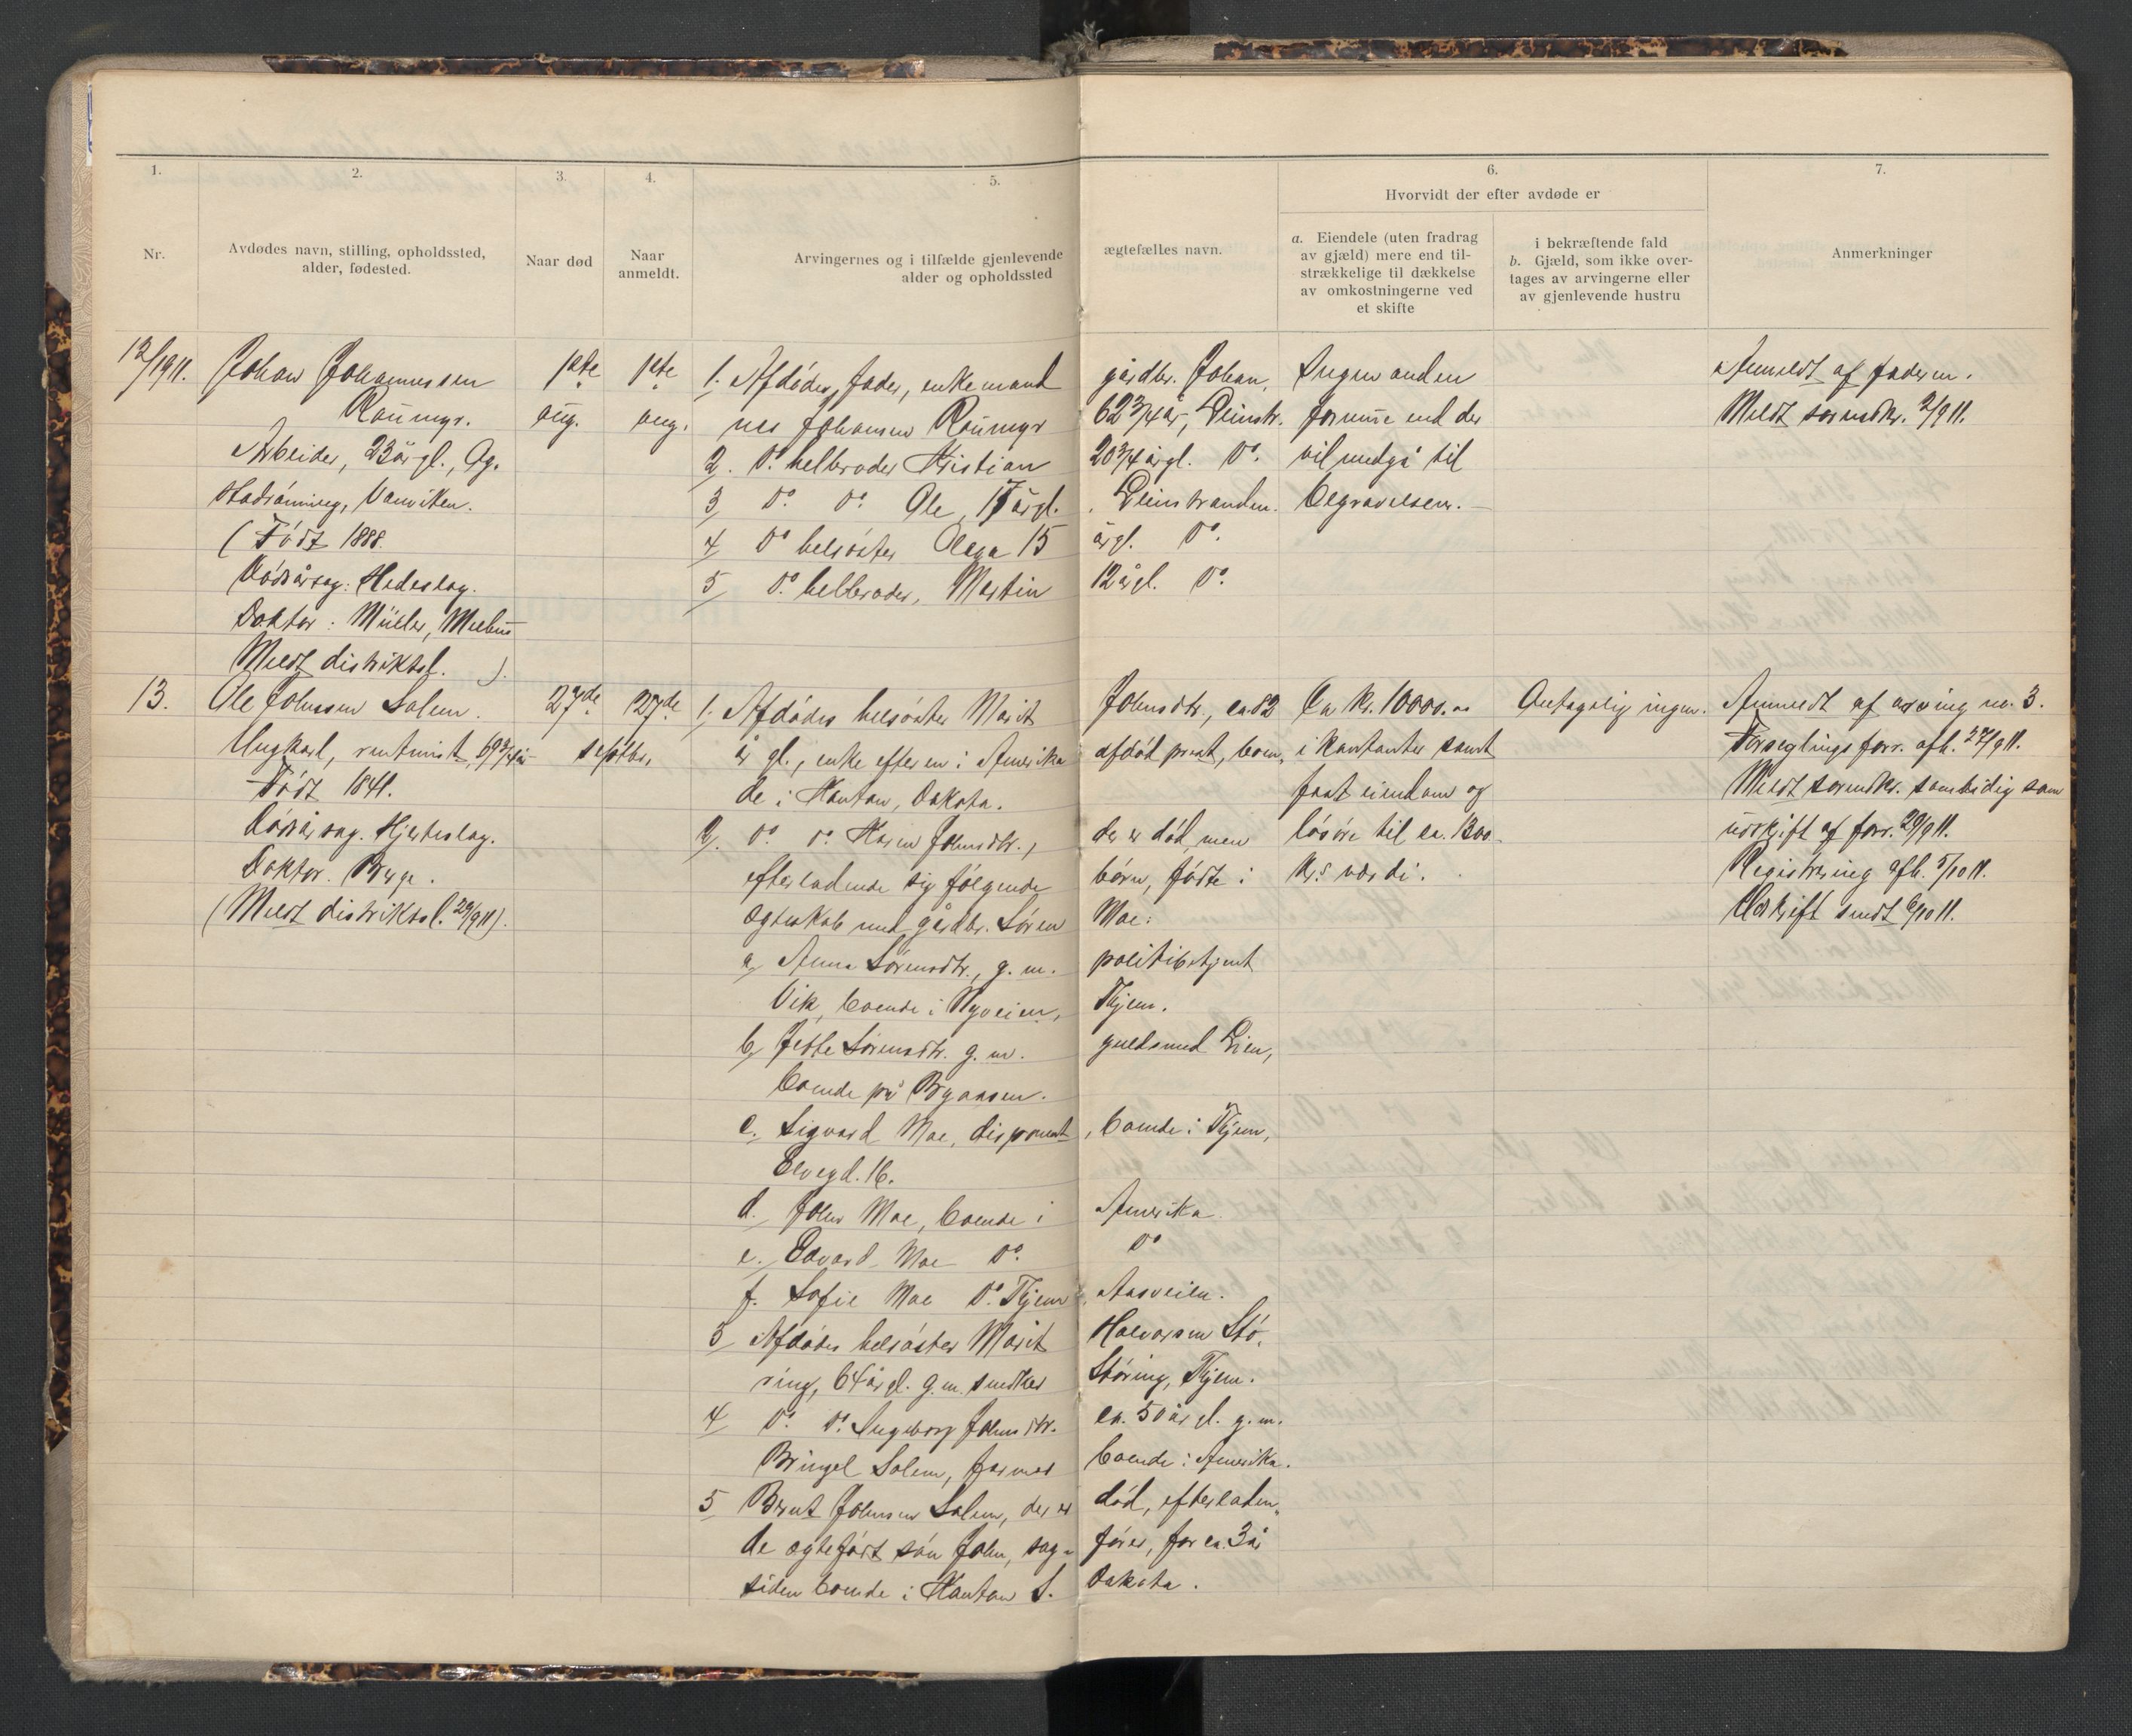 1.
2.
3.
4.
5.
6.
7.
Nr.
Avdødes navn, stilling, opholdssted,
alder, fødested.
Naar død
Naar
anmeldt.
Arvingernes og i tilfælde gjenlevende ægtefælles navn.
alder og opholdssted
Hvorvidt der efter avdøde er
a. Eiendele (uten fradrag
av gjæld) mere end til-
strækkelige til dækkelse
av omkostningerne ved
et skifte
i bekræftende fald
b. Gjæld, som ikke over-
tages av arvingerne eller
av gjenlevende hustru
Anmerkninger
12/1911.
Johan Johannessen
Raumyr.
Arbeider, 23 år gl.,
Vanviken.
(Født 1888.
Dødsårsag: Hedeslag.
Doktor: Müller,
Meldt distriktsl. ).
1ste
aug.
1ste
aug.
1. Afdødes fader, enkemand gårdbr. Johan,
nes Johansen Raumyr 62 3/4 år, Leinstr.
2. Do. helbroder Kristian 20 3/4 år gl. Do.
3 Do. Do. Ole, 17 år gl. Leinstranden.
4 Do helsøster Olaga 15 år gl. Do.
5 Do. helbroder, Martin 12 år gl. Do.
Ingen anden
formue end der
vil medgå til
begravelsen.
Anmeldt af faderen.
Meldt sorenskr. 2/9 11.
13.
Ole Johnsen Solem.
Ungkarl, rentenist, 69 3/4 år
Født 1841.
Dødsårsag. Hjerteslag.
Doktor. Bryn.
(Meldt distriktsl. 29/9 11).
27de
septbr.
27de
1. Afdødes helsøster Marit Johnsdtr., ca. 82
år gl., enke efter en i Amerika afdød prest, boen,
de i Kanton, Dakota.
2. Do. Do. Karen Johnsdtr., der er død, men
efterladende sig følgende børn, fødte i
ægteskab med gårdbr. Søren Moe:
a, Anna Sørensdtr., g. m. politibetjent
Vik, boende i Nyveien, Thjem.
b, Jette Sørensdtr. g. m. guldsmed Lien,
boende på Byaasen.
c. Sigvard Moe, disponent, boende i Thjem,
Elvegd. 16.
d. John Moe, boende i Amerika
e. Edvard Moe Do. Do
f. Sofie Moe Do. Thjem, Aasveien.
3 Afdødes helsøster Marit Halvorsen Stø,
ring, 64 år gl. g. m. snedker Støring, Thjem.
4 Do. Do. Ingeborg Johnsdtr. ca. 50 år gl. g. m.
Bringel Solem, farmer boende i Amerika.
5 Brnt Johnsen Solem, der er død, efterladen,
de ægtefødt søn John, sag- fører, for ca. 3 år
siden boende i Kanton S. Dakota.
Ca kr. 10000.00
i kontanter samt
fast eiendom og
løsøre til ca. 1300
krs værdi.
Antagelig ingen.
Anmeldt af arving no. 3.
Forseglingsforr. afh. 27/9 11.
Meldt sorenskr. samtidig som
udskrift af forr. 29/9 11.
Registrering afh. 5/10 11.
Udskrift sendt 6/10 11.